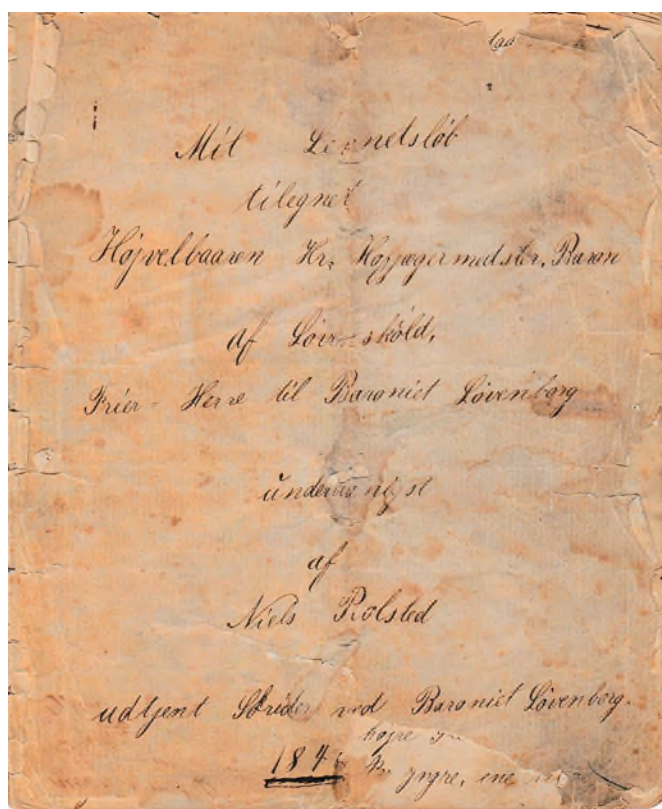 Mit Levnetsløb
tilegnet
Højvelbaaren Hr. Hofjægermedster, Baron
af Løvenskøld,
Frier-Herre til Baroniet Løvenborg
underdanigst
af
Niels Rolsted
udtjent Skrider ved Baroniet Løvenborg.
højre
184
yngre, ene